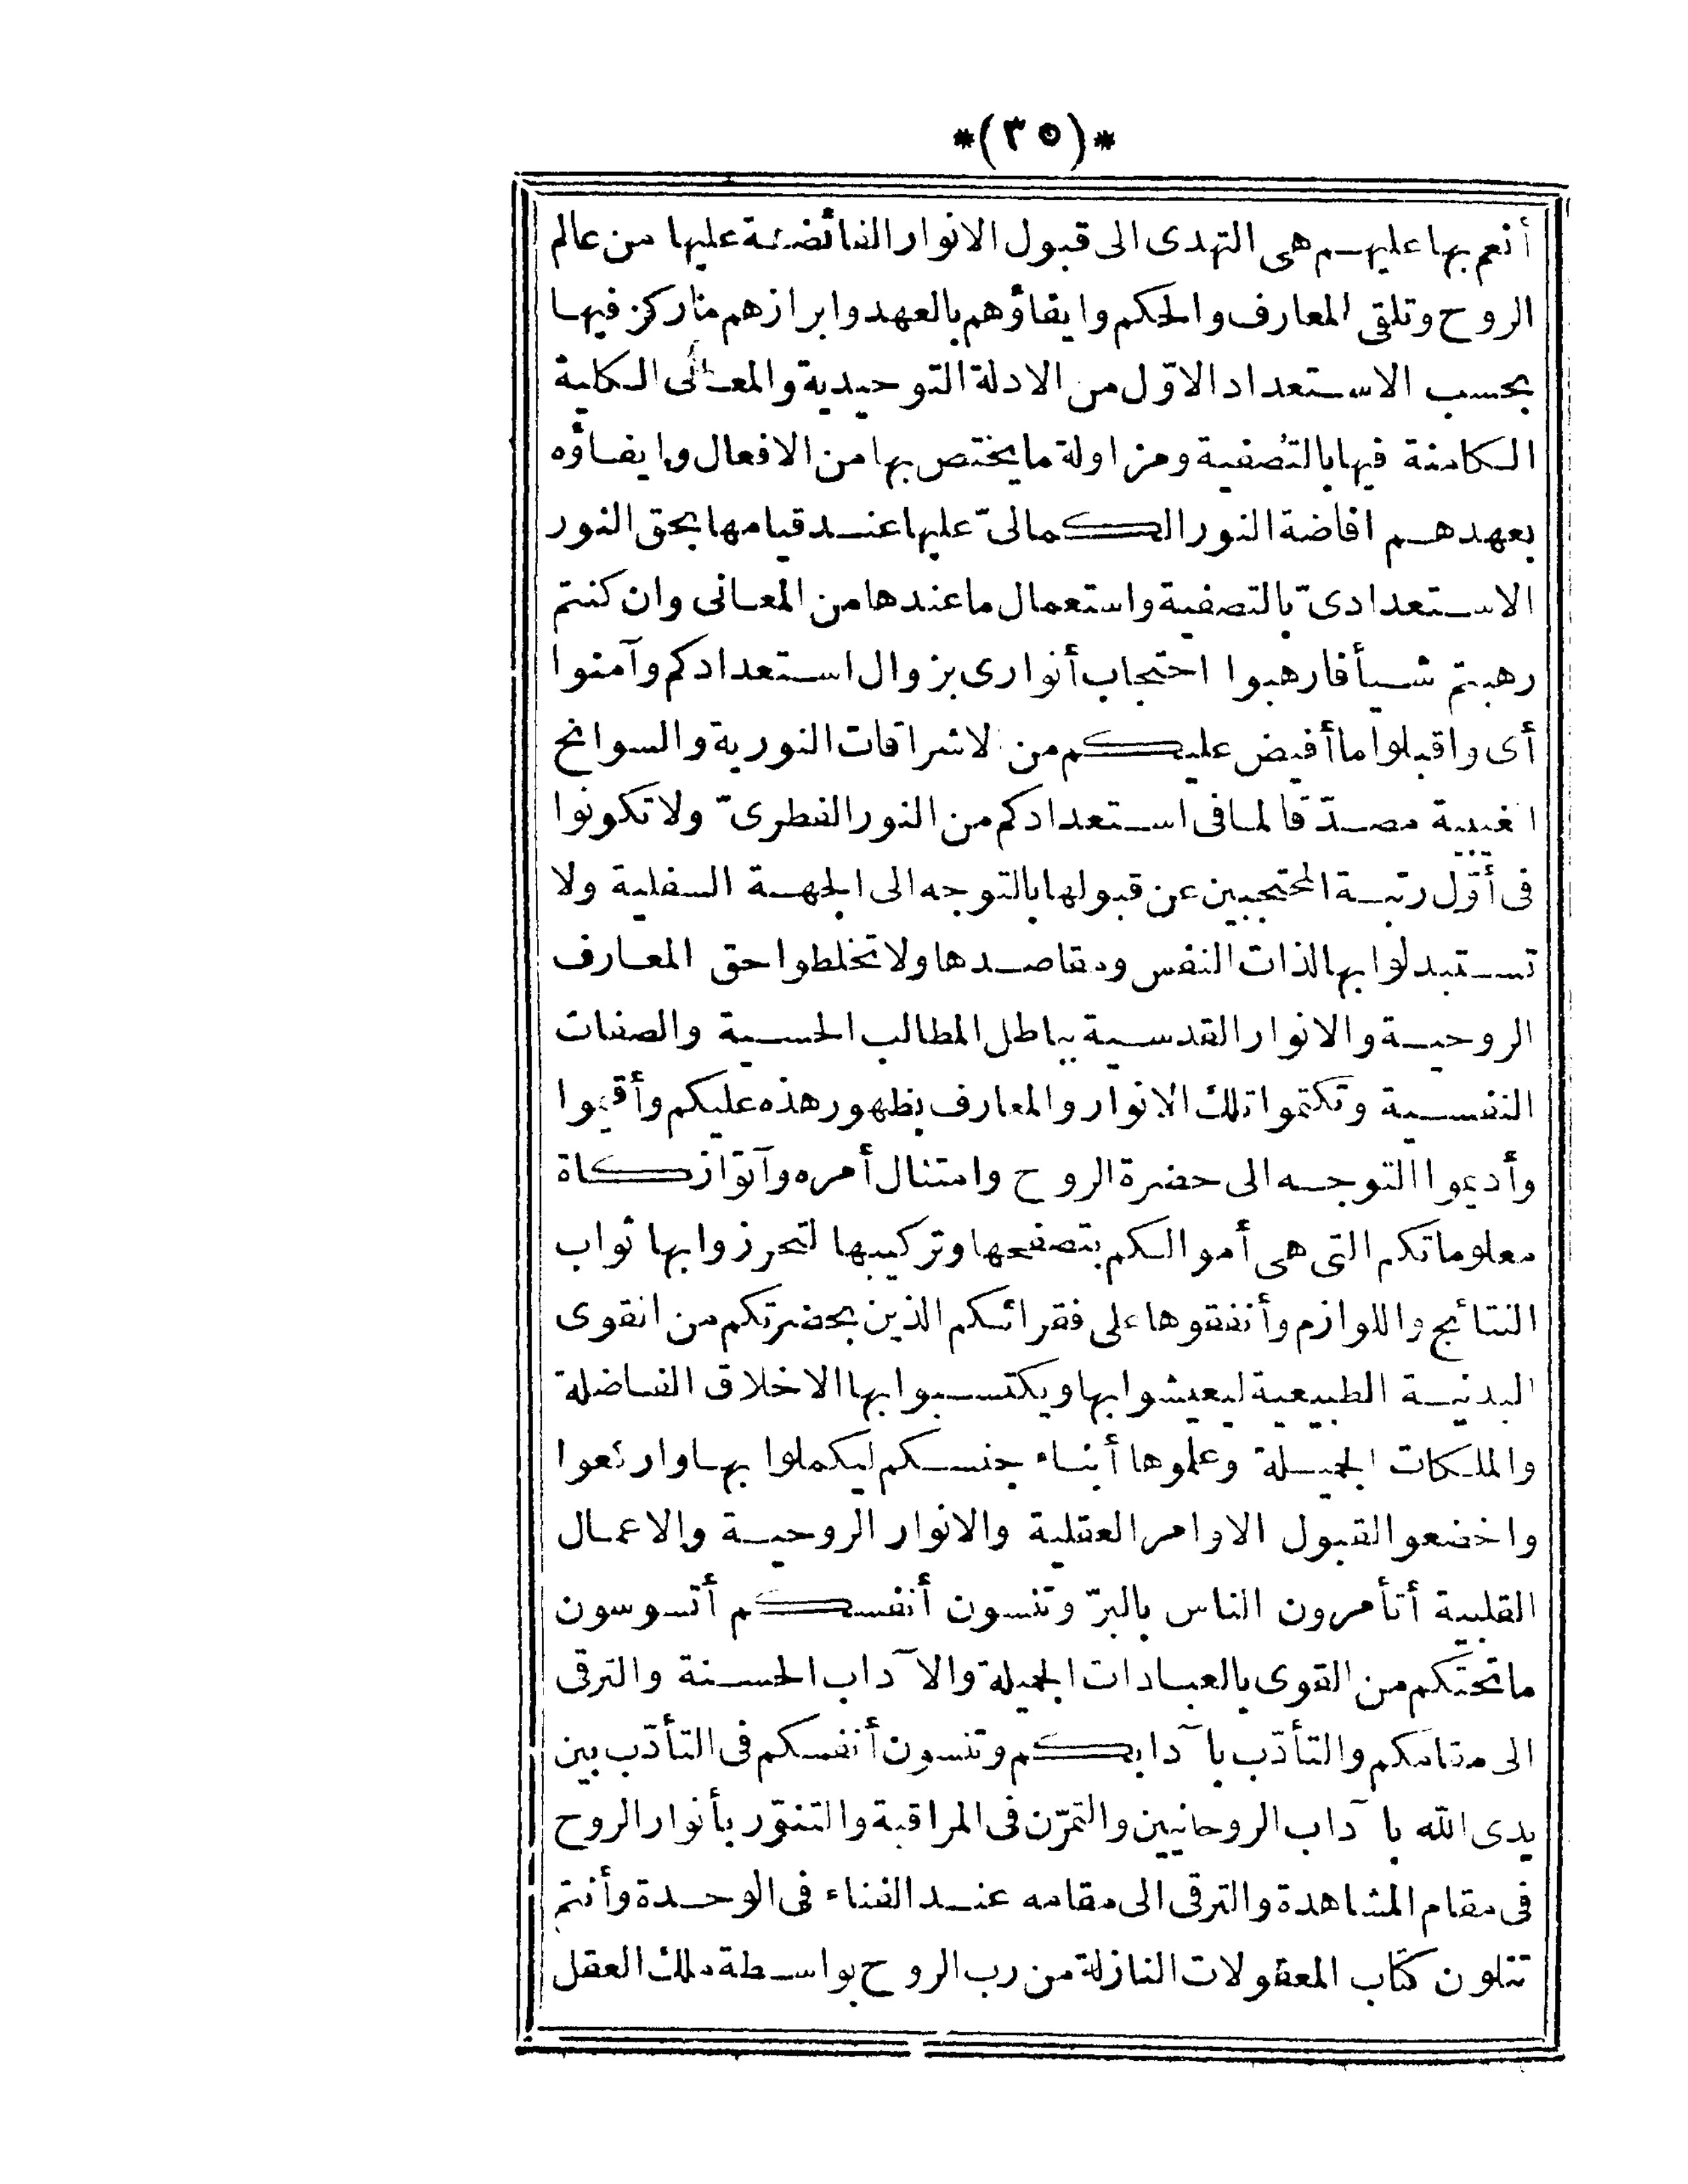 *(٣٥)*
أنعم بها عليهم هى التهدى الى قبول الانوار الفائضة عليها من عالم
الروح وتلقى المعارف والحكم وايفاؤهم بالعهد وابرازهم ماركز فيها
بحسب الاستعداد الاوّل من الادلة التوحيدية والمعانى الكلية
الكامنة فيها بالتصفية ومزاولة ما يختص بها من الافعال وايفاؤه
بعهدهم افاضة النور الكمالىّ عليها عند قيامها بحق النور
الاستعدادىّ بالتصفية واستعمال ما عندها من المعانى وان كنتم
رهبتم شيأ فارهبوا احتجاب أنوارى بزوال استعدادكم وآمنوا
أى واقبلوا ما أفيض عليكم من الاشراقات النورية والسوانح
الغيبية مصدّقا لما فى استعدادكم من النور الفطرىّ ولا تكونوا
فى أوّل رتبة المحتجبين عن قبولها بالتوجه الى الجهة السفلية ولا
تستبدلوا بها لذات النفس ومقاصدها ولا تخلطوا حق المعارف
الروحية والانوار القدسية بباطل المطالب الحسية والصفات
النفسية وتكتموا تلك الانوار والمعارف بظهور هذه عليكم وأقيموا
وأديموا التوجه الى حضرة الروح وامتثال أمره وآتوا زكاة
معلوماتكم التى هى أموالكم بتصفحها وتركيبها لتحرزوا بها ثواب
النتائج واللوازم وأنفقوها على فقرائكم الذين بحضرتكم من القوى
البدنية الطبيعية ليعيشوا بها ويكتسبوا بها الاخلاق الفاضلة
والملكات الجميلة وعلموها أبناء جنسكم ليكملوا بها واركعوا
واخضعوا لقبول الاوامر العقلية والانوار الروحية والاعمال
القلبية أتأمرون الناس بالبرّ وتنسون أنفسكم أتسوسون
ما تحتكم من القوى بالعبادات الجميلة والآداب الحسنة والترقى
الى مقامكم والتأدّب بآدابكم وتنسون أنفسكم فى التأدّب بين
يدى الله بآداب الروحانيين والتمرّن فى المراقبة والتنوّر بأنوار الروح
فى مقام المشاهدة والترقى الى مقامه عند الفناء فى الوحدة وأنتم
تتلون كتاب المعقولات النازلة من رب الروح بواسطة ملك العقل